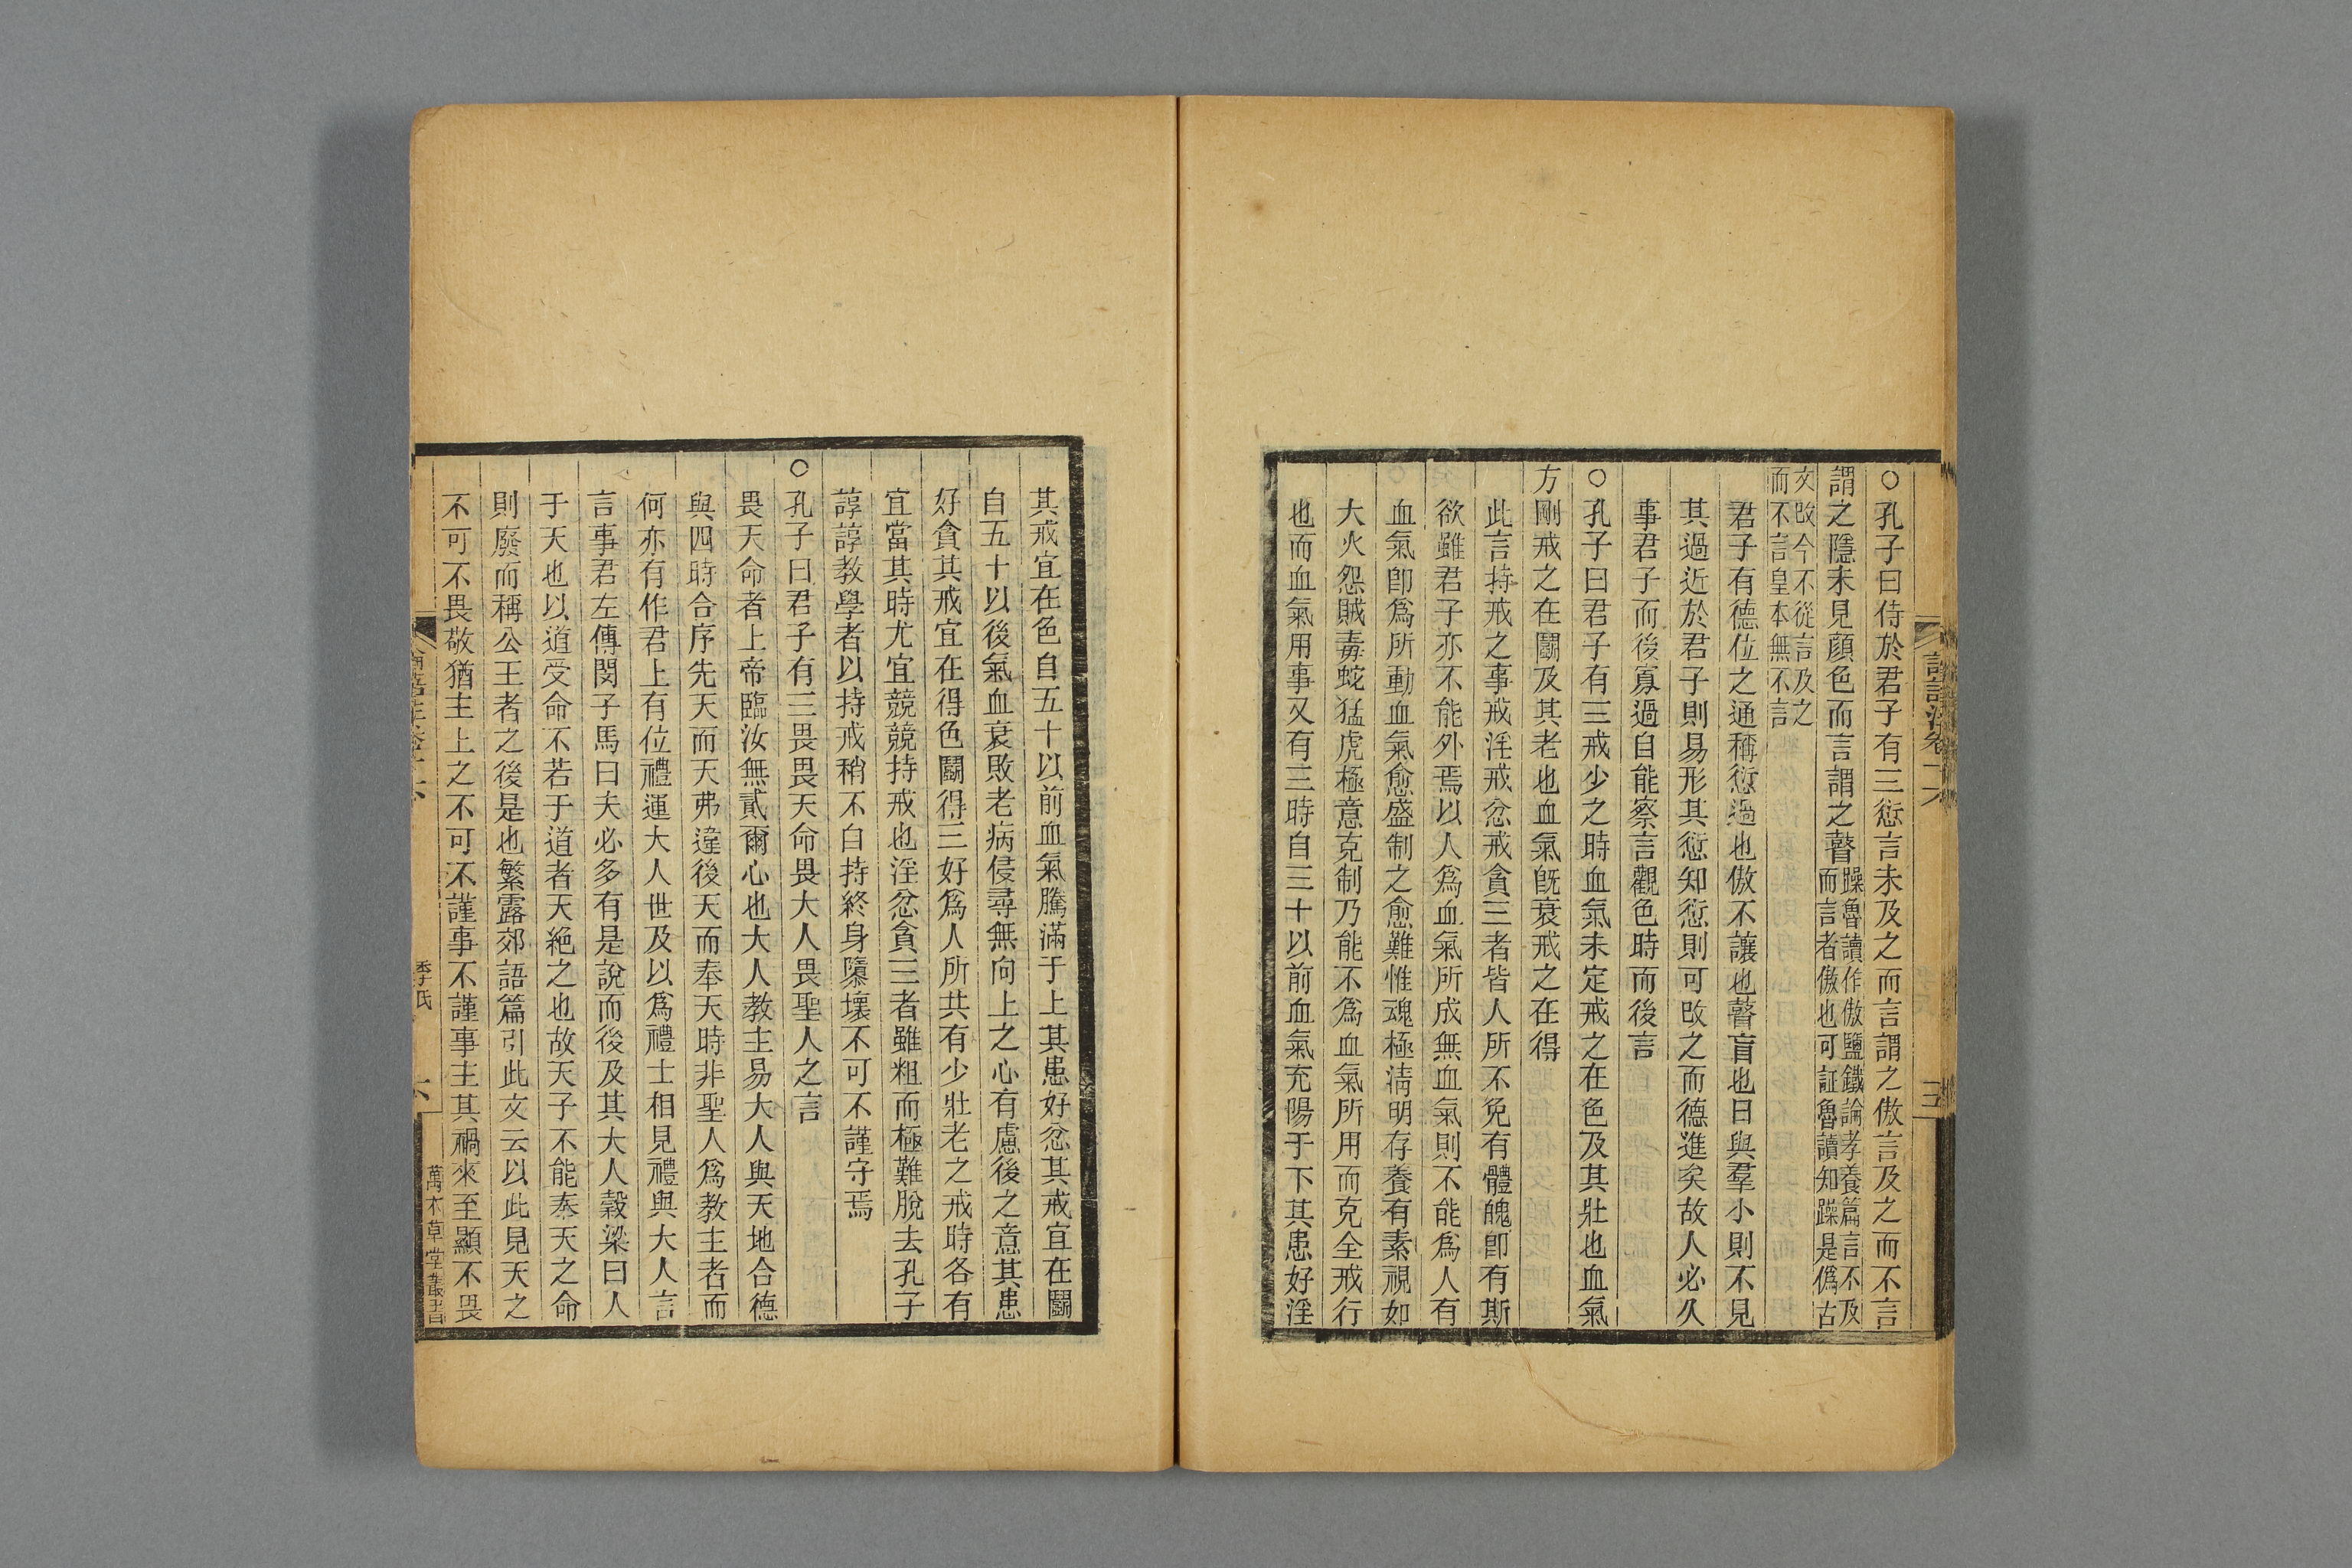 ○孔子曰侍於君子有三愆言未及之而言謂之傲言及之而不言
謂之隱未見顔色而言謂之瞽
躁魯讀作傲鹽鐵論孝養篇言不及
而言者傲也可証魯讀知躁是僞古
文改今不從言及之
而不言皇本無不言
君子有德位之通稱愆過也傲不讓也瞽盲也日與羣小則不見
其過近於君子則易形其愆知愆則可改之而德進矣故人必久
事君子而後寡過自能察言觀色時而後言
○孔子曰君子有三戒少之時血氣未定戒之在色及其壯也血氣
方剛戒之在鬭及其老也血氣旣衰戒之在得
此言持戒之事戒淫戒忿戒貪三者皆人所不免有體魄卽有斯
欲雖君子亦不能外焉以人爲血氣所成無血氣則不能爲人有
血氣卽爲所動血氣愈盛制之愈難惟魂極淸明存養有素視如
大火怨賊毒蛇猛虎極意克制乃能不爲血氣所用而克全戒行
也而血氣用事又有三時自三十以前血氣充陽于下其患好淫
論語注卷十六
五
其戒宜在色自五十以前血氣騰滿于上其患好忿其戒宜在鬭
自五十以後氣血衰敗老病侵尋無向上之心有慮後之意其患
好貪其戒宜在得色鬭得三好爲人所共有少壯老之戒時各有
宜當其時尤宜競競持戒也淫忿貪三者雖粗而極難脫去孔子
諄諄教學者以持戒稍不自持終身隳壞不可不謹守焉
○孔子曰君子有三畏畏天命畏大人畏聖人之言
畏天命者上帝臨汝無貳爾心也大人教主易大人與天地合德
與四時合序先天而天弗違後天而奉天時非聖人爲教主者而
何亦有作君上有位禮運大人世及以爲禮士相見禮與大人言
言事君左傳閔子馬曰夫必多有是說而後及其大人穀梁曰人
于天也以道受命不若于道者天絕之也故天子不能奉天之命
則廢而稱公王者之後是也繁露郊語篇引此文云以此見天之
不可不畏敬猶主上之不可不謹事不謹事主其禍來至顯不畏
季氏
六
萬木草堂叢書